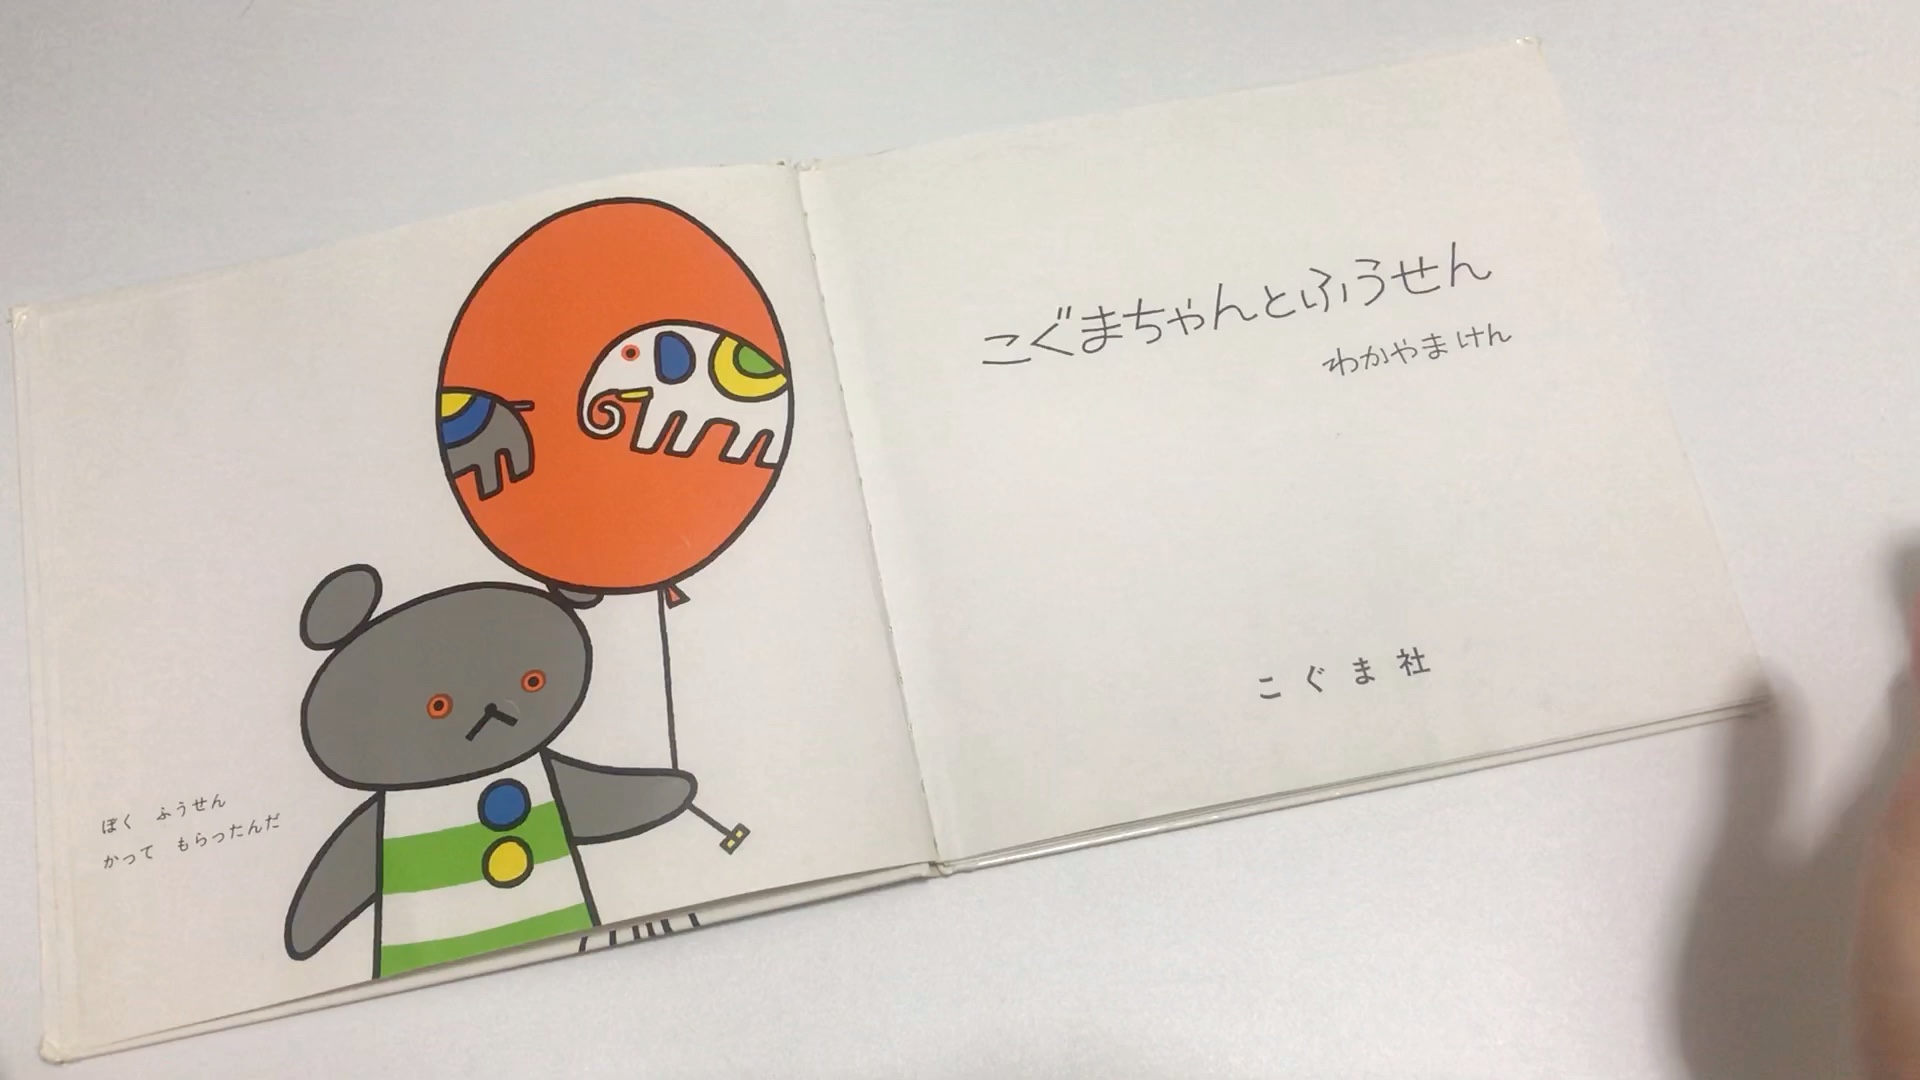 ぼく　ふうせん
かって　もらったんだ
こぐまちゃんとふうせん
わかやまけん
こぐま社